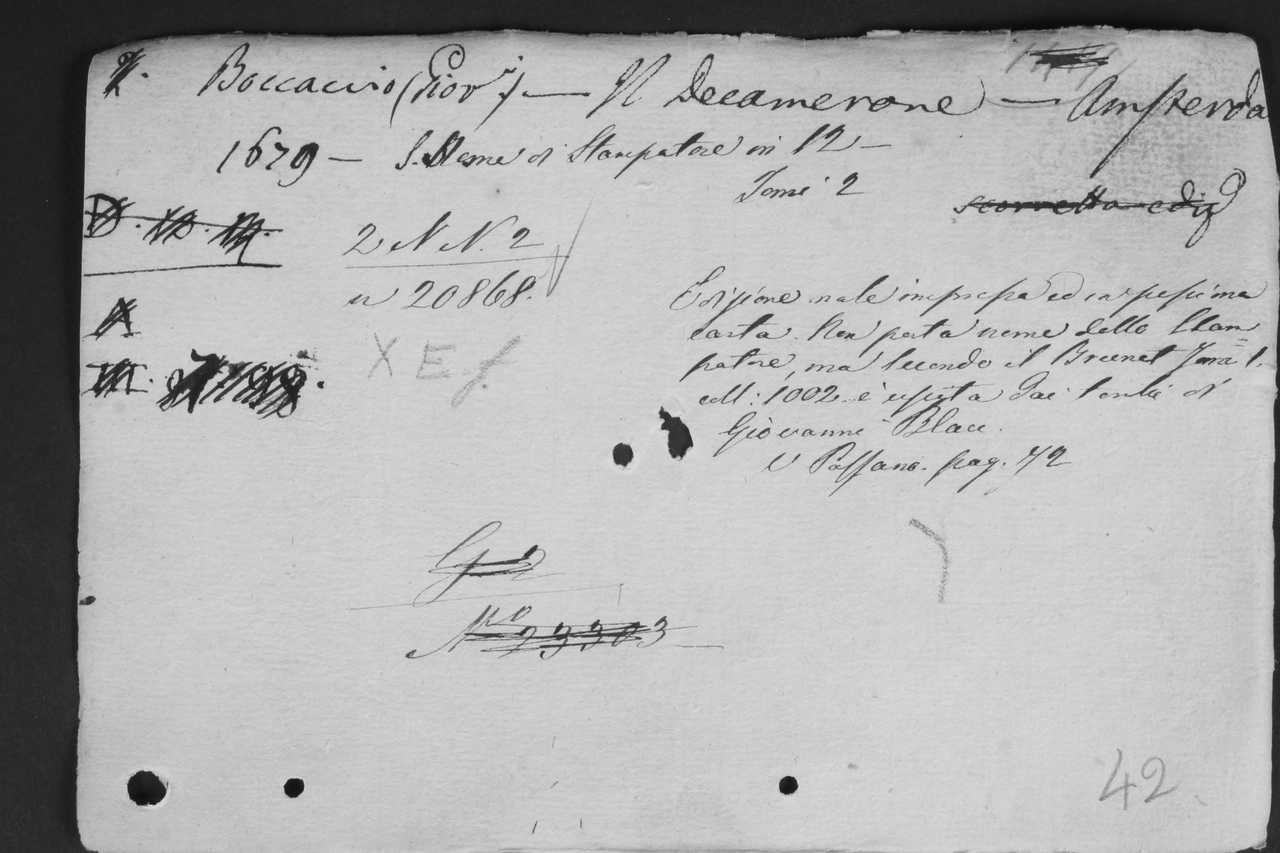 Boccaccio (Giov.i) — Il Decamerone — Amsterda
1679 — S. Nome di Stampatore in 12 —
Tomi 2
scorretta ediz
2 N N. 2
n 20868.
X E f.
Edizione male impressa ed in pessima
carta. Non porta nome dello Stam
patore, ma secondo il Brunet Tom 1.
coll: 1002. è uscita dai torchi di
Giovanni Blaeu.
V Passano. pag. 42
G 2
No 23303
42